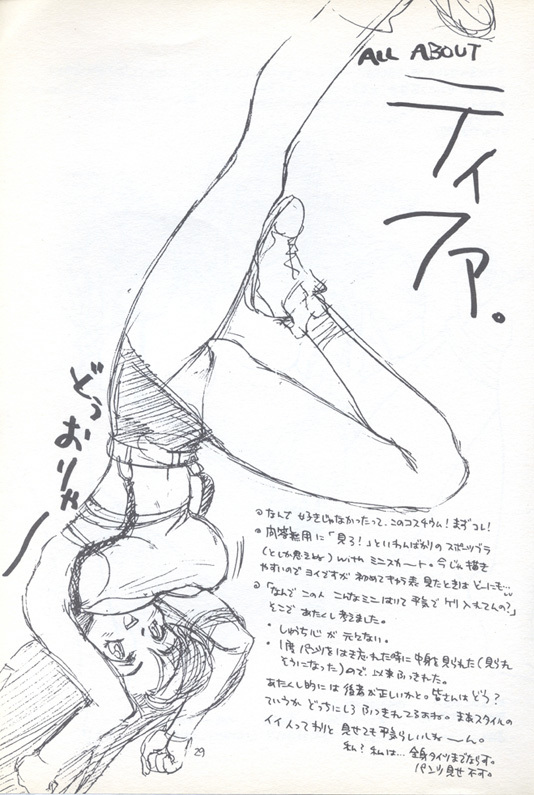 ALL ABOUT
ティファ。
どぅおりゃー
なんで 好きじゃなかったって、このコスチウム! まずコレ!
問答無用に「見ろ!」といわんばかりのスポーツブラ
(としか思えねぇ) with ミニスカート。今じゃ描き
やすいのでヨイですが 初めてキャラ表 見たときは どーにも…
「なんで この人 こんなミニはいて 平気で ケリ入れてんの?」
そこで あたくし 考えました。
・しゅう恥心が 元々ない。
・1度 パンツをはき忘れた時に 中身を見られた (見られ
そうになった)ので、以来ふっきれた。
あたくし的には 後者が正しいかと。皆さんは どう?
ていうか どっちにしろ ふっきれてるよね。まあスタイルの
イイ人ってわりと 見せても 平気らしいしね〜ん。
私? 私は… 全身タイツまでならす。
パンツ見せ不す。
29